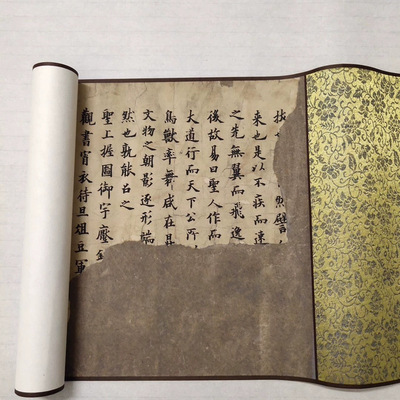 譬
來也是以不疾而速
之先無翼而飛逸
後故易曰聖人作而
大道行而天下公所
鳥獸率舞咸在
文物之朝影逐形端
然也孰能名之
聖上握圖御宇
觀書宵衣待旦俎豆軍